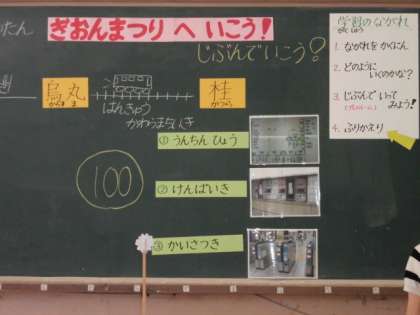 たん
ぎおんまつり へ いこう！
じぶんでいこう？
烏丸
からすま
桂
かつら
はんきゅう
かわらまちいき
100
① うんちん ひょう
② けんばいき
③ かいさつき
学習のながれ
がくしゅう
1. ながれを かくにん
2. どのように いくのかな？
3. じぶんで いって みよう！
4. ふりかえり